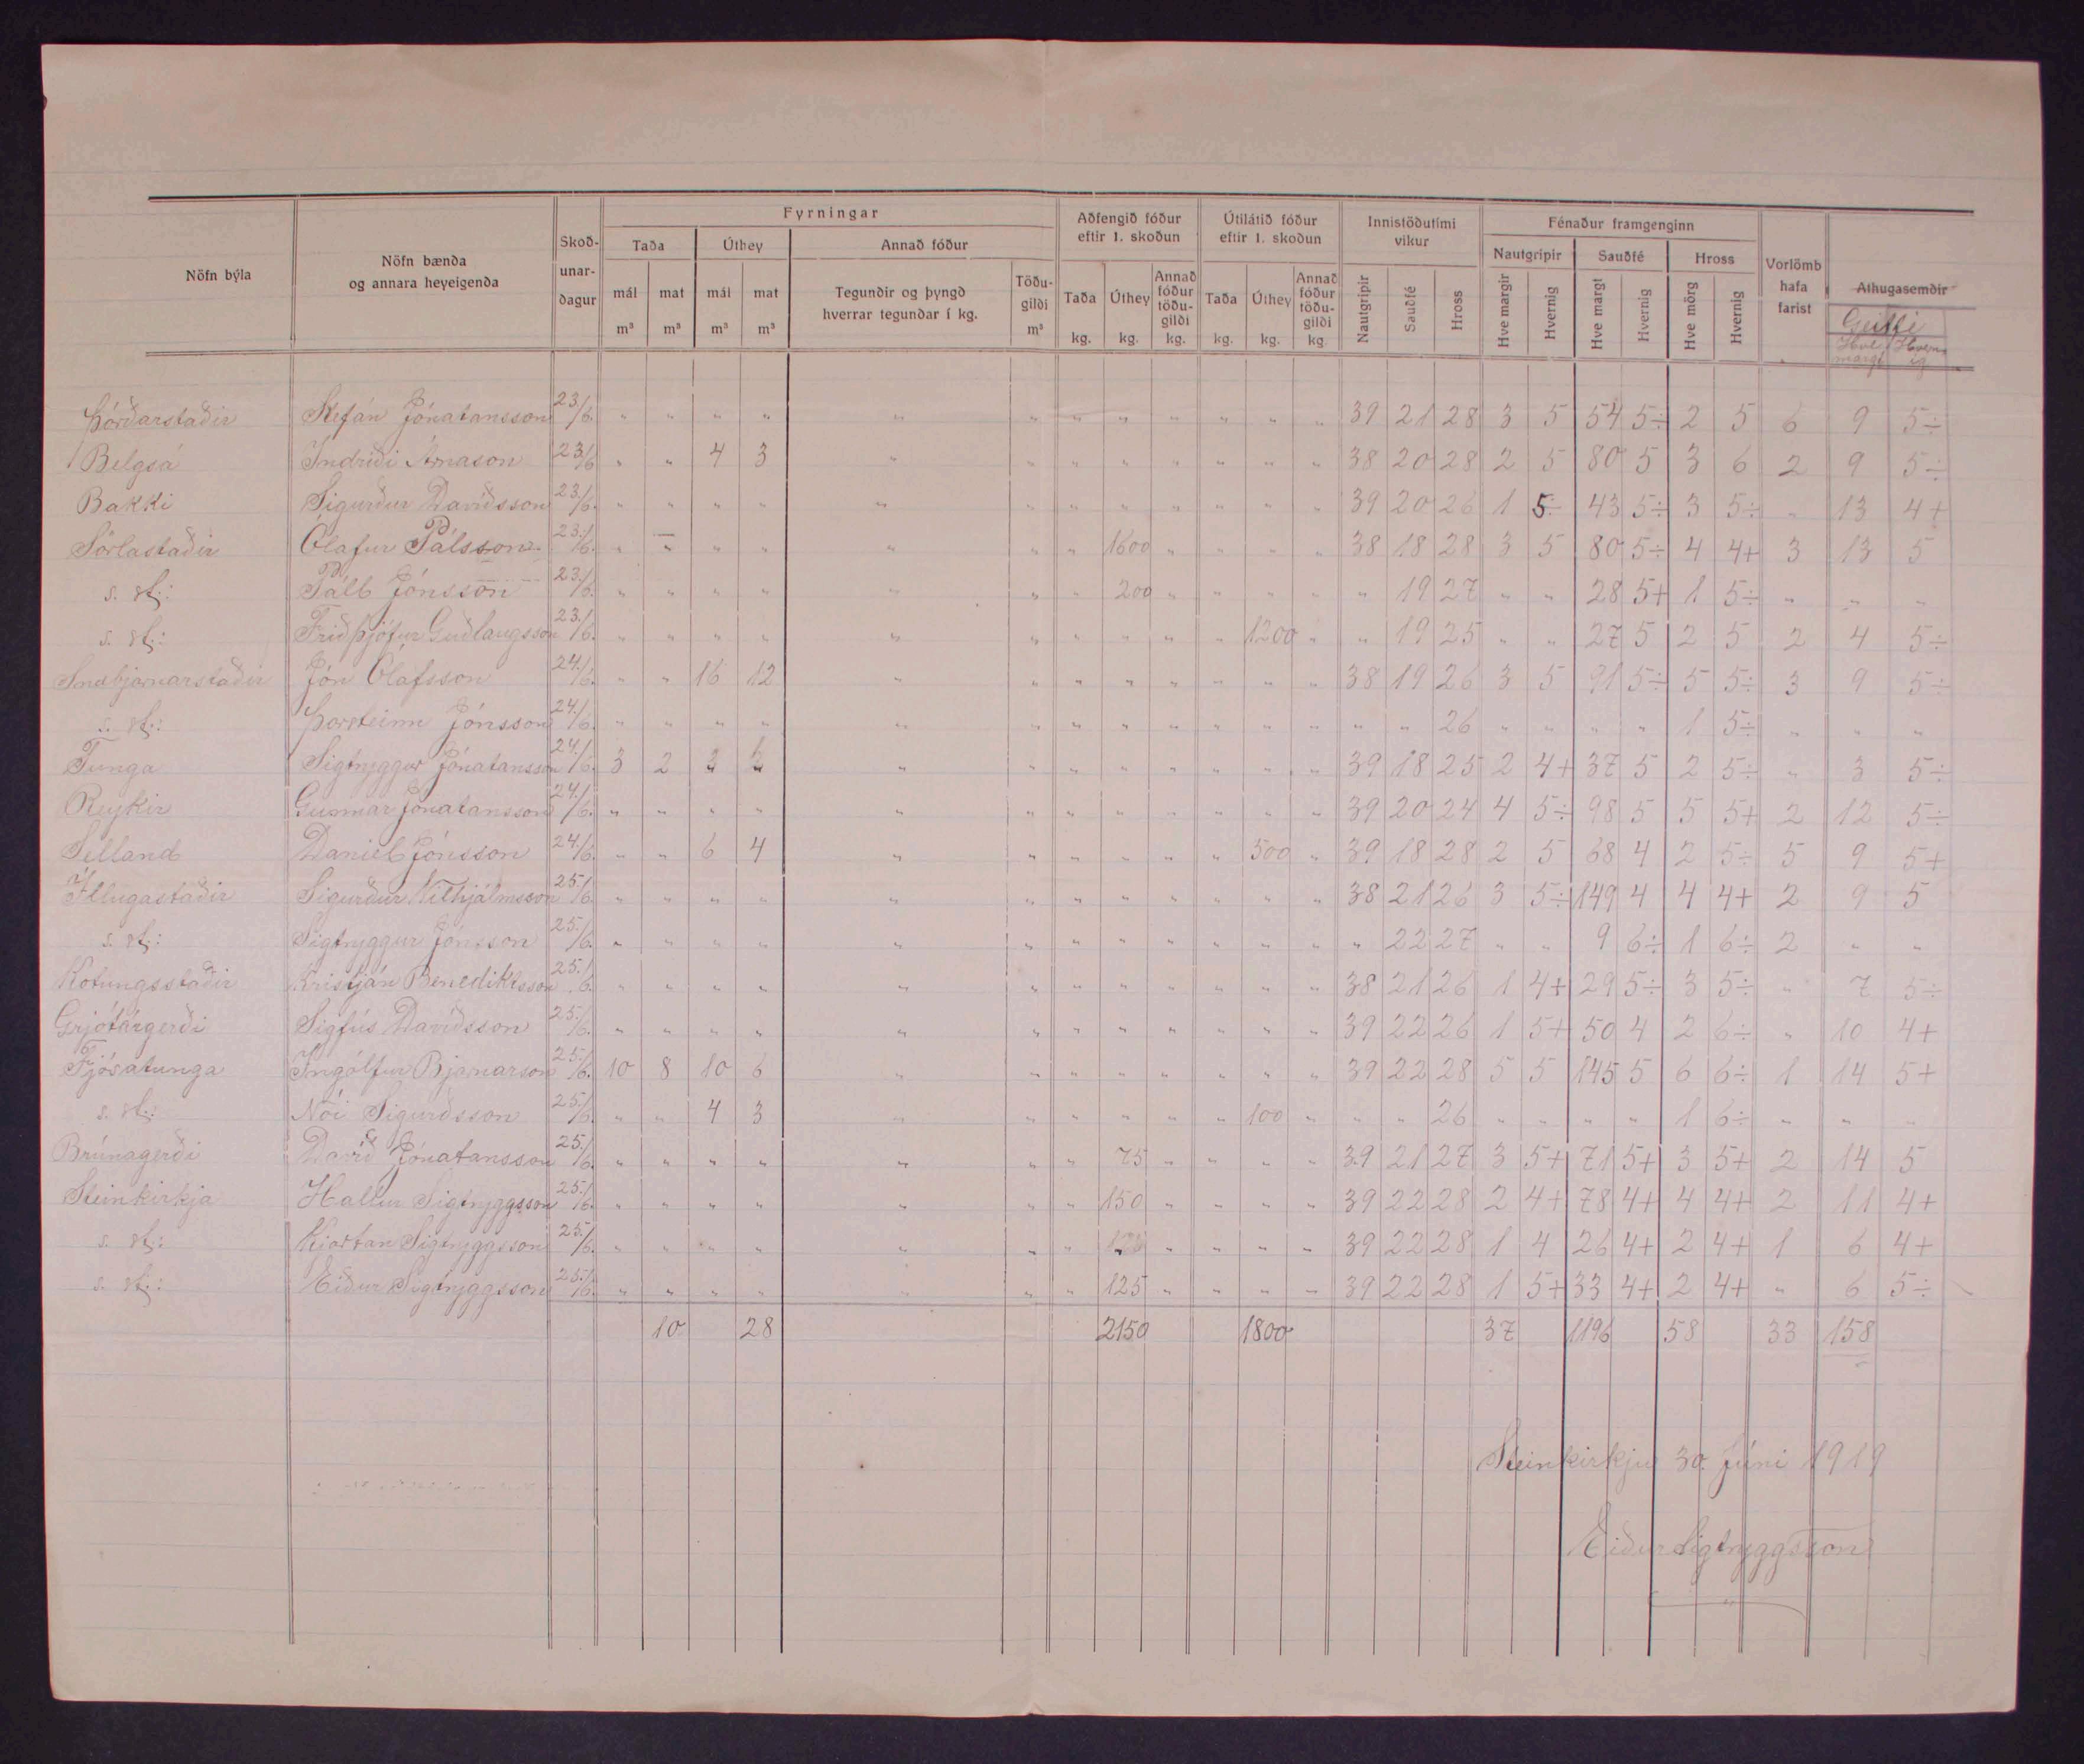 Fyrningar
Aðfengið fóður eftir 1. skoðun
Útilátið fóður eftir 1. skoðun
Innistöðutími vikur
Fénaður framgenginn
Nöfn býla
Nöfn bænda og annara heyeigenda
Skoð-unar-dagur
Taða
Úthey
Annað fóður
Nautgripir
Sauðfé
Hross
Vorlömb hafa farist
Athugasemdir
mál m³
mat m³
mál m³
mat m³
Tegundir og þyngd hverrar tegundar í kg.
Töðu-gildi m³
Taða kg.
Úthey kg.
Annað fóður töðu-gildi kg.
Taða kg.
Úthey kg.
Annað fóður töðu-gildi kg
Nautgripir
Sauðfé
Hross
Hve margir
Hvernig
Hve margt
Hvernig
Hve mörg
Hvernig
Geitfé
Hve margt
Hvernig
Þórðarstaðir Stefán Jónatansson 23/6. " " " " " " " " " " " " 39 21 28 3 5 54 5÷ 2 5 6 9 5÷
Belgsá Indriði Árnason 23/6 " " 4 3 " " " " " " " " 38 20 28 2 5 80 5 3 6 2 9 5÷
Bakki Sigurður Davíðsson 23/6. " " " " " " " " " " " " 39 20 26 1 5÷ 43 5÷ 3 5÷ " 13 4+
Sörlastaðir Ólafur Pálsson 23/6. " " " " " " " 1600 " " " " 38 18 28 3 5 80 5÷ 4 4+ 3 13 5
s. st.: Páll Jónsson 23/6. " " " " " " " 200 " " " " " 19 27 " " 28 5+ 1 5÷ " " "
s. st.: Friðþjófur Guðlaugsson 23/6. " " " " " " " " " " 1200 " " 19 25 " " 27 5 2 5 2 4 5÷
Snæbjarnarstaðir Jón Ólafsson 24/6. " " 16 12 " " " " " " " " 38 19 26 3 5 91 5÷ 5 5÷ 3 9 5÷
s. st.: Þorsteinn Jónsson 24/6. " " " " " " " " " " " " " " 26 " " " " 1 5÷ " " "
Tunga Sigtryggur Jónatansson 24/6. 3 2 " " " " " " " " 39 18 25 2 4+ 37 5 2 5÷ " 3 5÷
Reykir Gunnar Jónatansson 24/6. " " " " " " " " " " " " 39 20 24 4 5÷ 98 5 5 5+ 2 12 5÷
Selland Daníel Jónsson 24/6. " " 6 4 " " " " " " 500 " 39 18 28 2 5 68 4 2 5÷ 5 9 5+
Illugastaðir Sigurður Vilhjálmsson 25/6. " " " " " " " " " " " " 38 21 26 3 5÷ 149 4 4 4+ 2 9 5
s. st.: Sigtryggur Jónsson 25/6. " " " " " " " " " " " " " 22 27 " " 9 6÷ 1 6÷ 2 " "
Kotungsstaðir Kristján Benediktsson 25/6. " " " " " " " " " " " " 38 21 26 1 4+ 29 5÷ 3 5÷ " 7 5÷
Grjótárgerði Sigfús Davíðsson 25/6. " " " " " " " " " " " " 39 22 26 1 5+ 50 4 2 6÷ " 10 4+
Fjósatunga Ingólfur Bjarnarson 25/6. 10 8 10 6 " " " " " " " " 39 22 28 5 5 145 5 6 6÷ 1 14 5+
s. st.: Nói Sigurðsson 25/6. " " 4 3 " " " " " " 100 " " " 26 " " " " 1 6÷ " " "
Brúnagerði Davíð Jónatansson 25/6. " " " " " " " 75 " " " " 39 21 27 3 5+ 71 5+ 3 5+ 2 14 5
Steinkirkja Hallur Sigtryggsson 25/6. " " " " " " " 150 " " " " 39 22 28 2 4+ 78 4+ 4 4+ 2 11 4+
s. st.: Kjartan Sigtryggsson 25/6. " " " " " " " " " " " 39 22 28 1 4 26 4+ 2 4+ 1 6 4+
s. st.: Eiður Sigtryggsson 25/6. " " " " " " " 125 " " " " 39 22 28 1 5+ 33 4+ 2 4+ " 6 5÷
10 28 2150 1800 37 1196 58 33 158
Steinkirkju 30. Júní 1919
Eiður Sigtryggsson